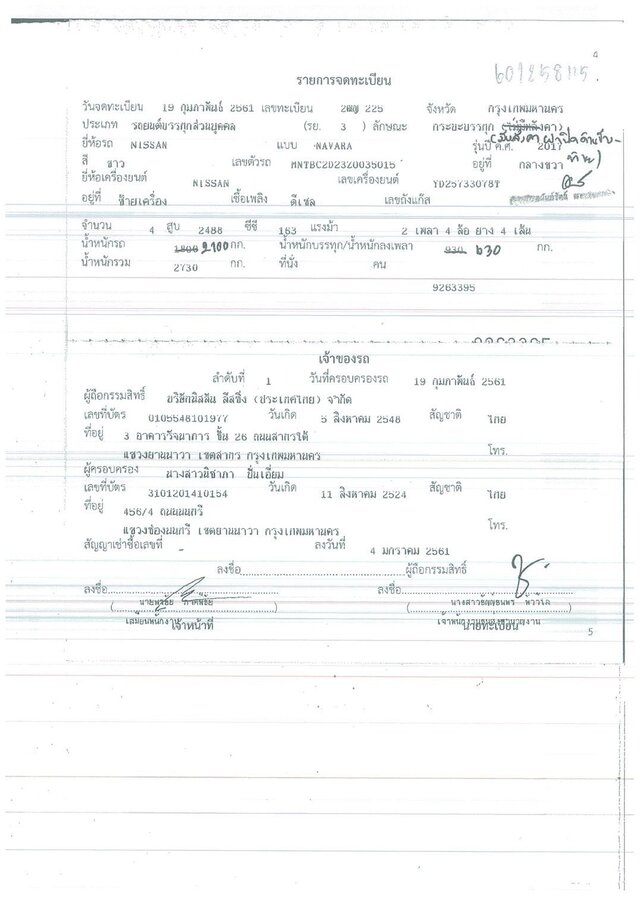 4
601258115.
รายการจดทะเบียน
วันจดทะเบียน 19 กุมภาพันธ์ 2561 เลขทะเบียน 225 จังหวัด กรุงเทพมหานคร
ประเภท รถยนต์บรรทุกส่วนบุคคล (รย. 3 ) ลักษณะ กระบะบรรทุก
ยี่ห้อรถ NISSAN แบบ NAVARA รุ่นปี ค.ศ. 2017
สี ขาว เลขตัวรถ MNTBC2D23Z0035015 อยู่ที่ กลางขวา
ยี่ห้อเครื่องยนต์ NISSAN เลขเครื่องยนต์ YD25733078T
อยู่ที่ ซ้ายเครื่อง เชื้อเพลิง ดีเซล เลขถังแก๊ส
จำนวน 4 สูบ 2488 ซีซี 163 แรงม้า 2 เพลา 4 ล้อ ยาง 4 เส้น
น้ำหนักรถ 1800 2100 กก. น้ำหนักบรรทุก/น้ำหนักลงเพลา 930 630 กก.
น้ำหนักรวม 2730 กก. ที่นั่ง คน
9263395
เจ้าของรถ
ลำดับที่ 1 วันที่ครอบครองรถ 19 กุมภาพันธ์ 2561
ผู้ถือกรรมสิทธิ์ บริษัทนิสสัน ลีสซิ่ง (ประเทศไทย) จำกัด
เลขที่บัตร 0105548101977 วันเกิด 5 สิงหาคม 2548 สัญชาติ ไทย
ที่อยู่ 3 อาคารรัจนาการ ชั้น 26 ถนนสาทรใต้
แขวงยานนาวา เขตสาทร กรุงเทพมหานคร โทร.
ผู้ครอบครอง นางสาวนิชาภา ปั่นเอี่ยม
เลขที่บัตร 3101201410154 วันเกิด 11 สิงหาคม 2524 สัญชาติ ไทย
ที่อยู่ 456/4 ถนนนนทรี
แขวงช่องนนทรี เขตยานนาวา กรุงเทพมหานคร โทร.
สัญญาเช่าซื้อเลขที่ - ลงวันที่ 4 มกราคม 2561
ลงชื่อ ผู้ถือกรรมสิทธิ์
ลงชื่อ ลงชื่อ
เจ้าหน้าที่ นายทะเบียน
5